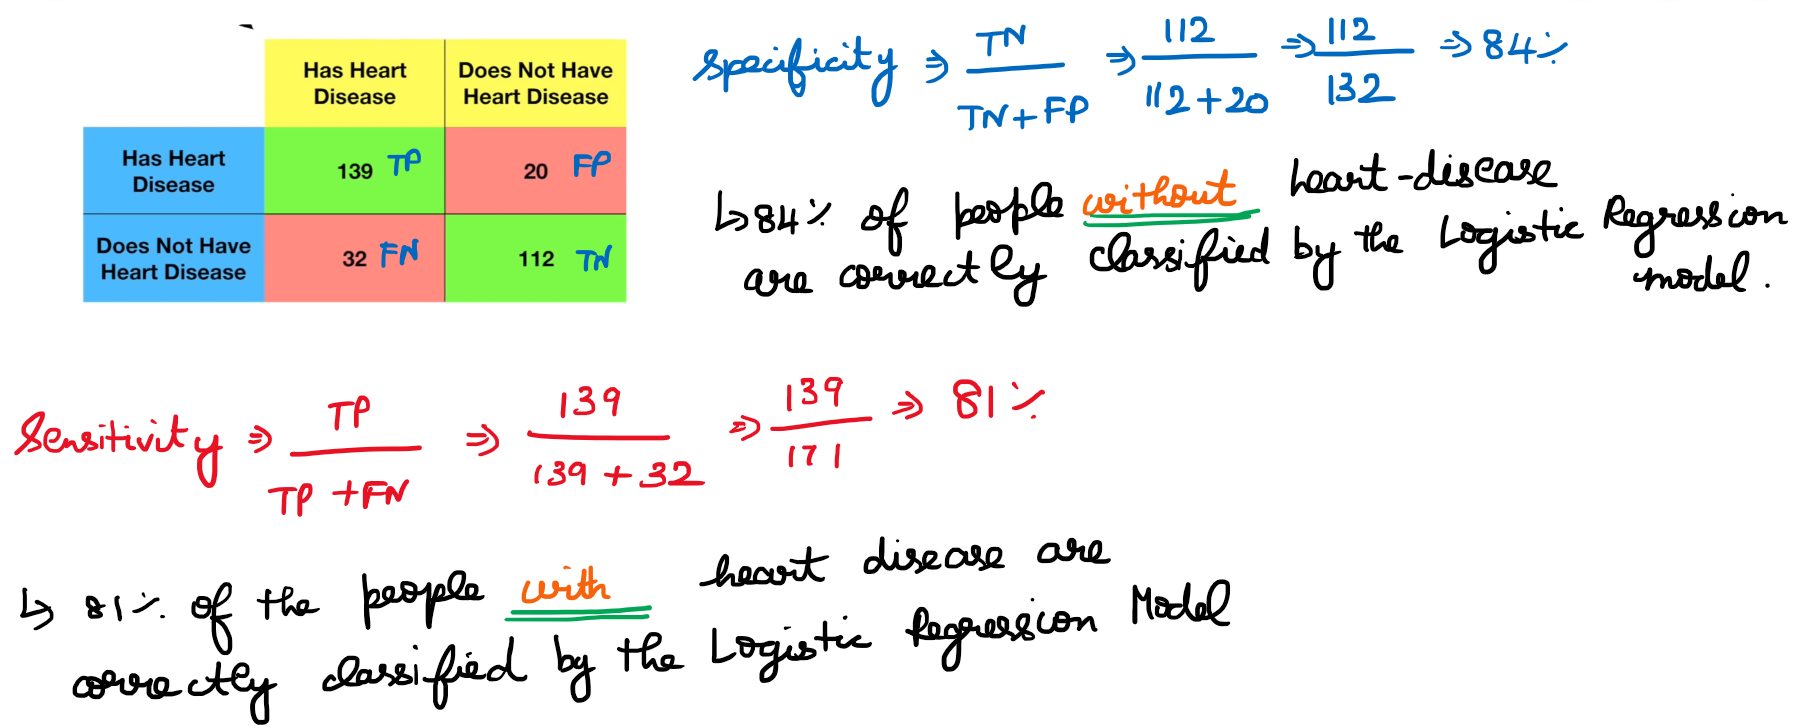 Has Heart Disease
Does Not Have Heart Disease
Has Heart Disease
139 TP
20 FP
Does Not Have Heart Disease
32 FN
112 TN
Specificity ⇒ TN / TN + FP ⇒ 112 / 112 + 20 ⇒ 112 / 132 ⇒ 84%
↳ 84% of people without heart-disease
are correctly classified by the Logistic Regression
model.
Sensitivity ⇒ TP / TP + FN ⇒ 139 / 139 + 32 ⇒ 139 / 171 ⇒ 81%
↳ 81% of the people with heart disease are
correctly classified by the Logistic Regression Model